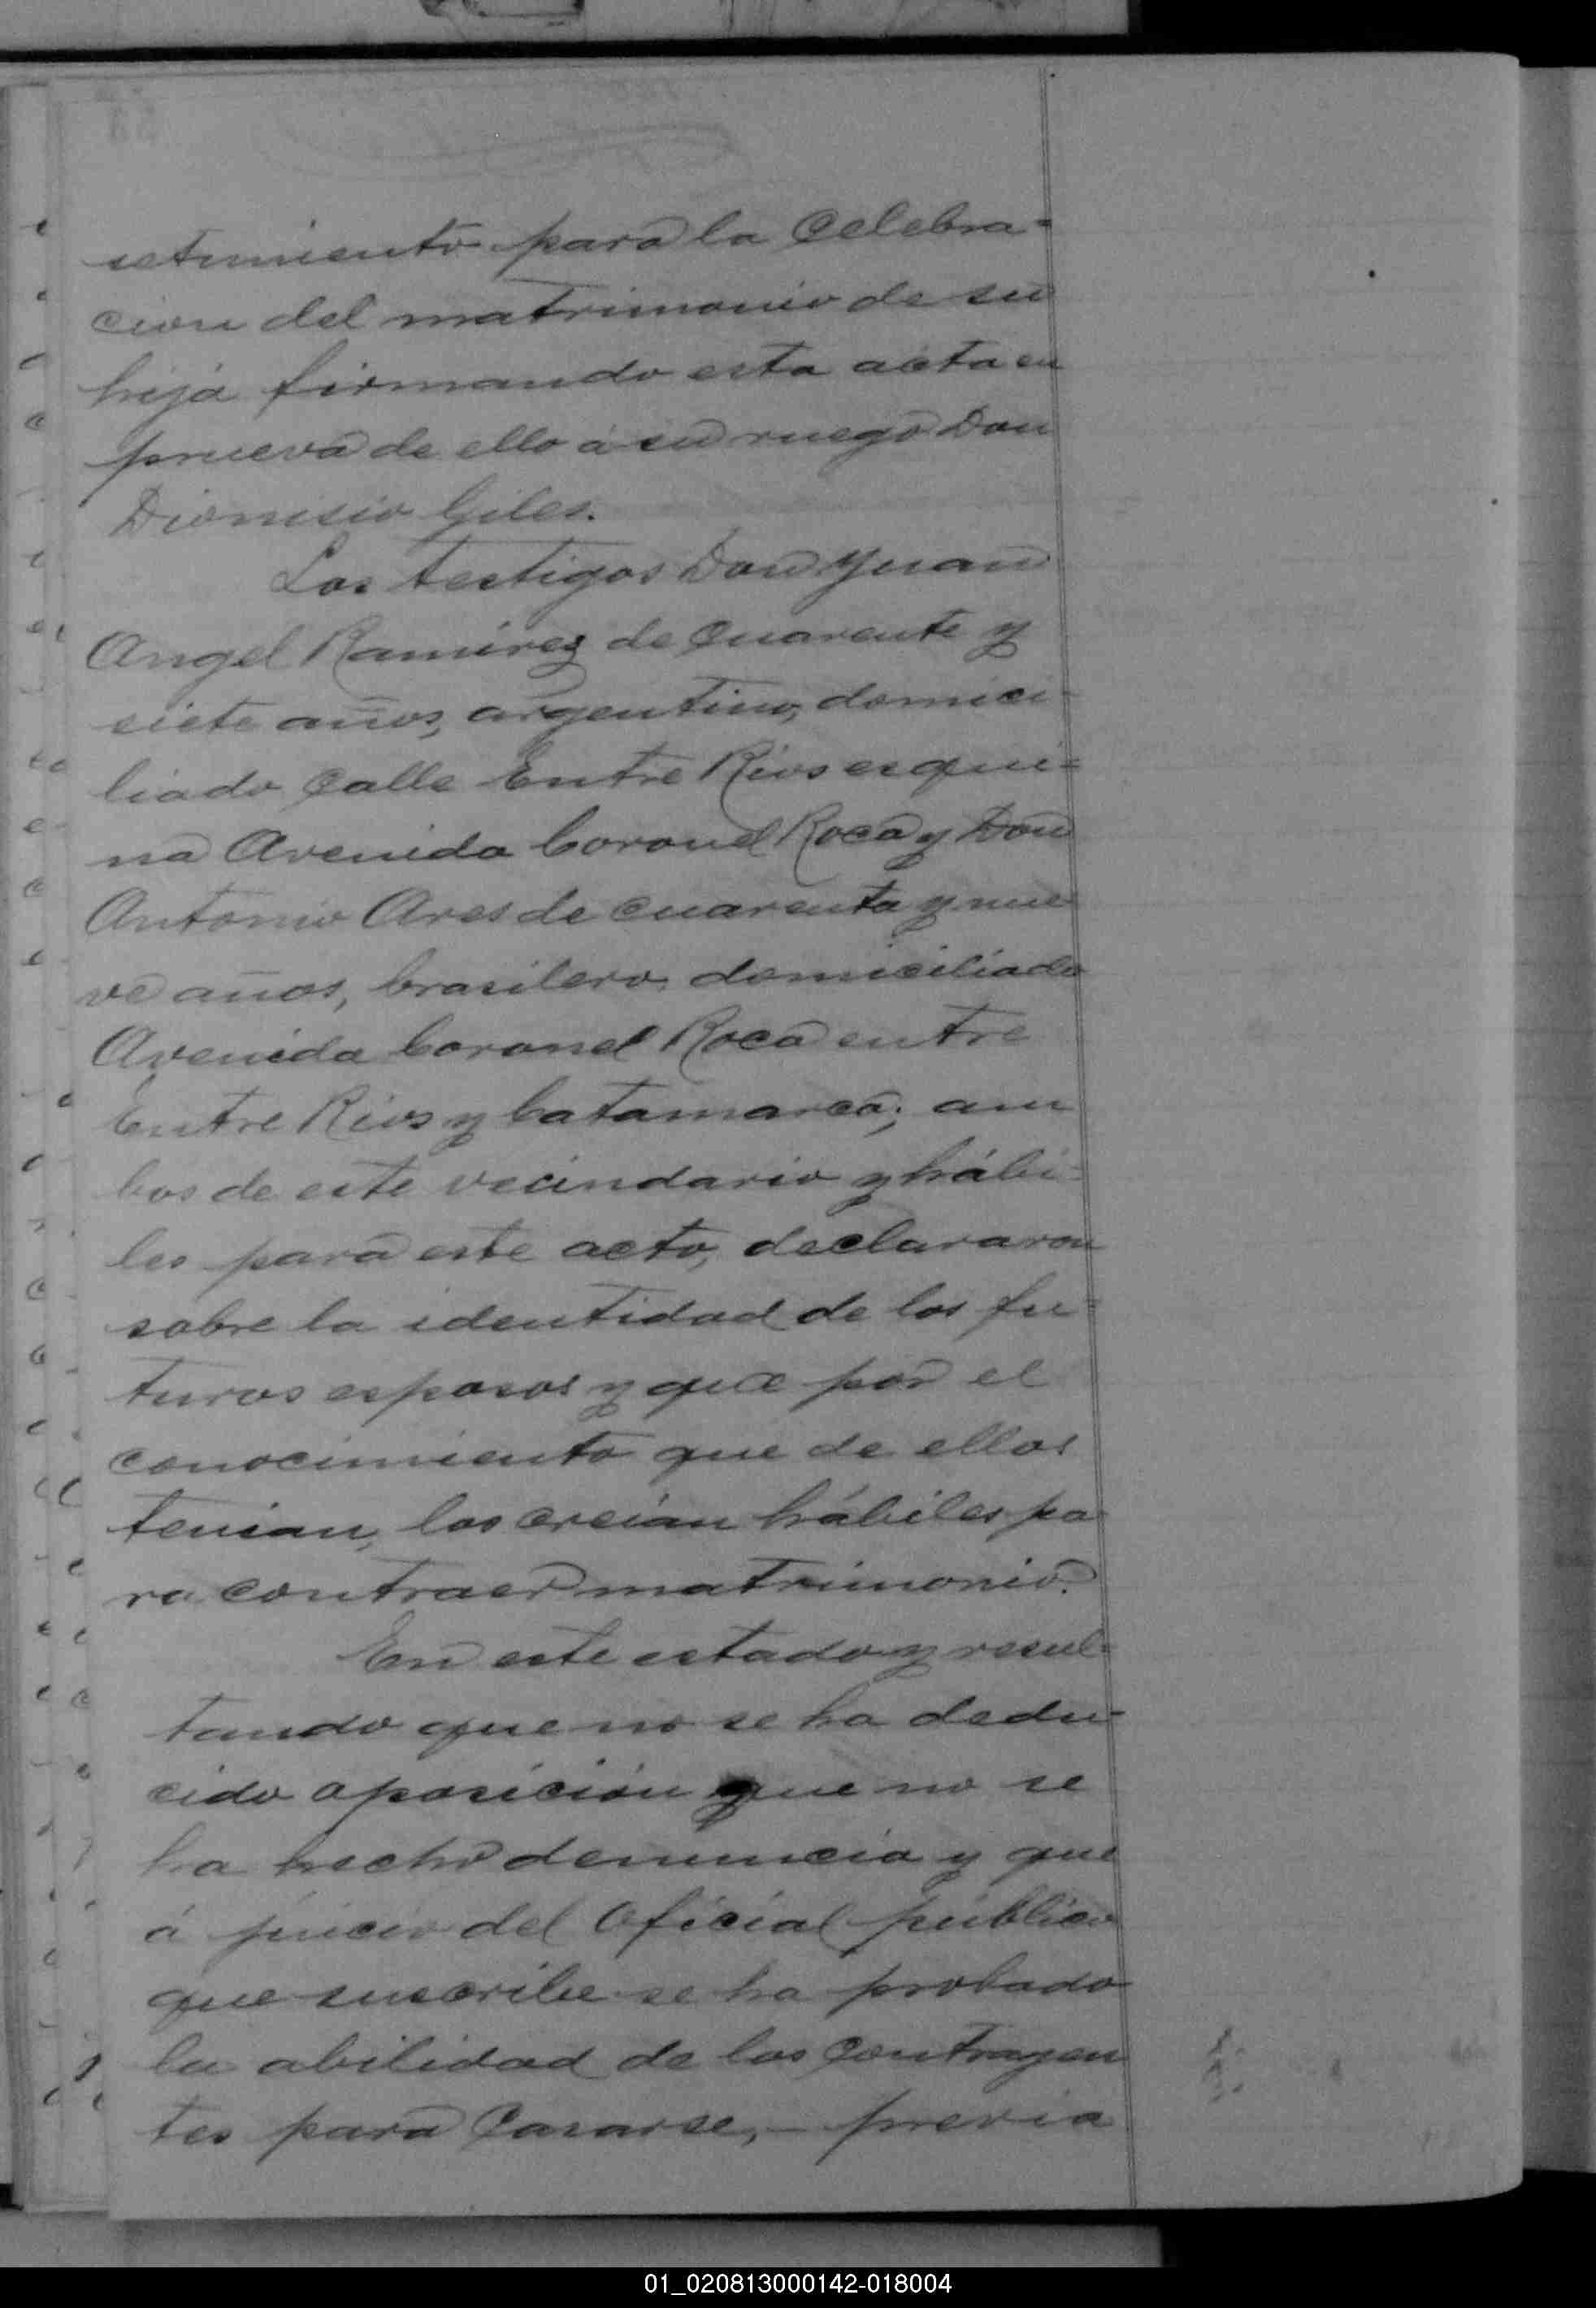 setimiento para la Celebra=
cion del matrimonio de su
hija firmando esta acta en
prueva de ello á su ruego Don
Dionisio Giles.
Los testigos Don Juan
Angel Ramirez de Cuarente y
siete años, argentino, domici-
liado Calle Entre Rios esqui=
na Avenida Coronel Roca y Don
Antonio Ares de cuarenta y nue
ve años, brasilero, domiciliado
Avenida Coronel Roca entre
Entre Rios y Catamarca; am
bos de este vecindario y hábi=
les para este acto, declararon
sobre la identidad de los fu=
turos esposos y que por el
conocimiento que de ellos
tenian, los creian hábiles pa
ra contraer matrimonio.
En este estado y resul=
tando que no se ha dedu=
cido oposición que no se
ha hecho denuncia y que
á juicio del Oficial público
que suscribe se ha probado
la abilidad de los Contrayen
tes para Casarse, - previa
01_020813000142-018004